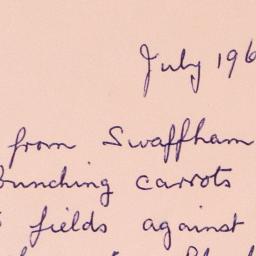 July 196
from Swaffham
Bunching carrots
fields against